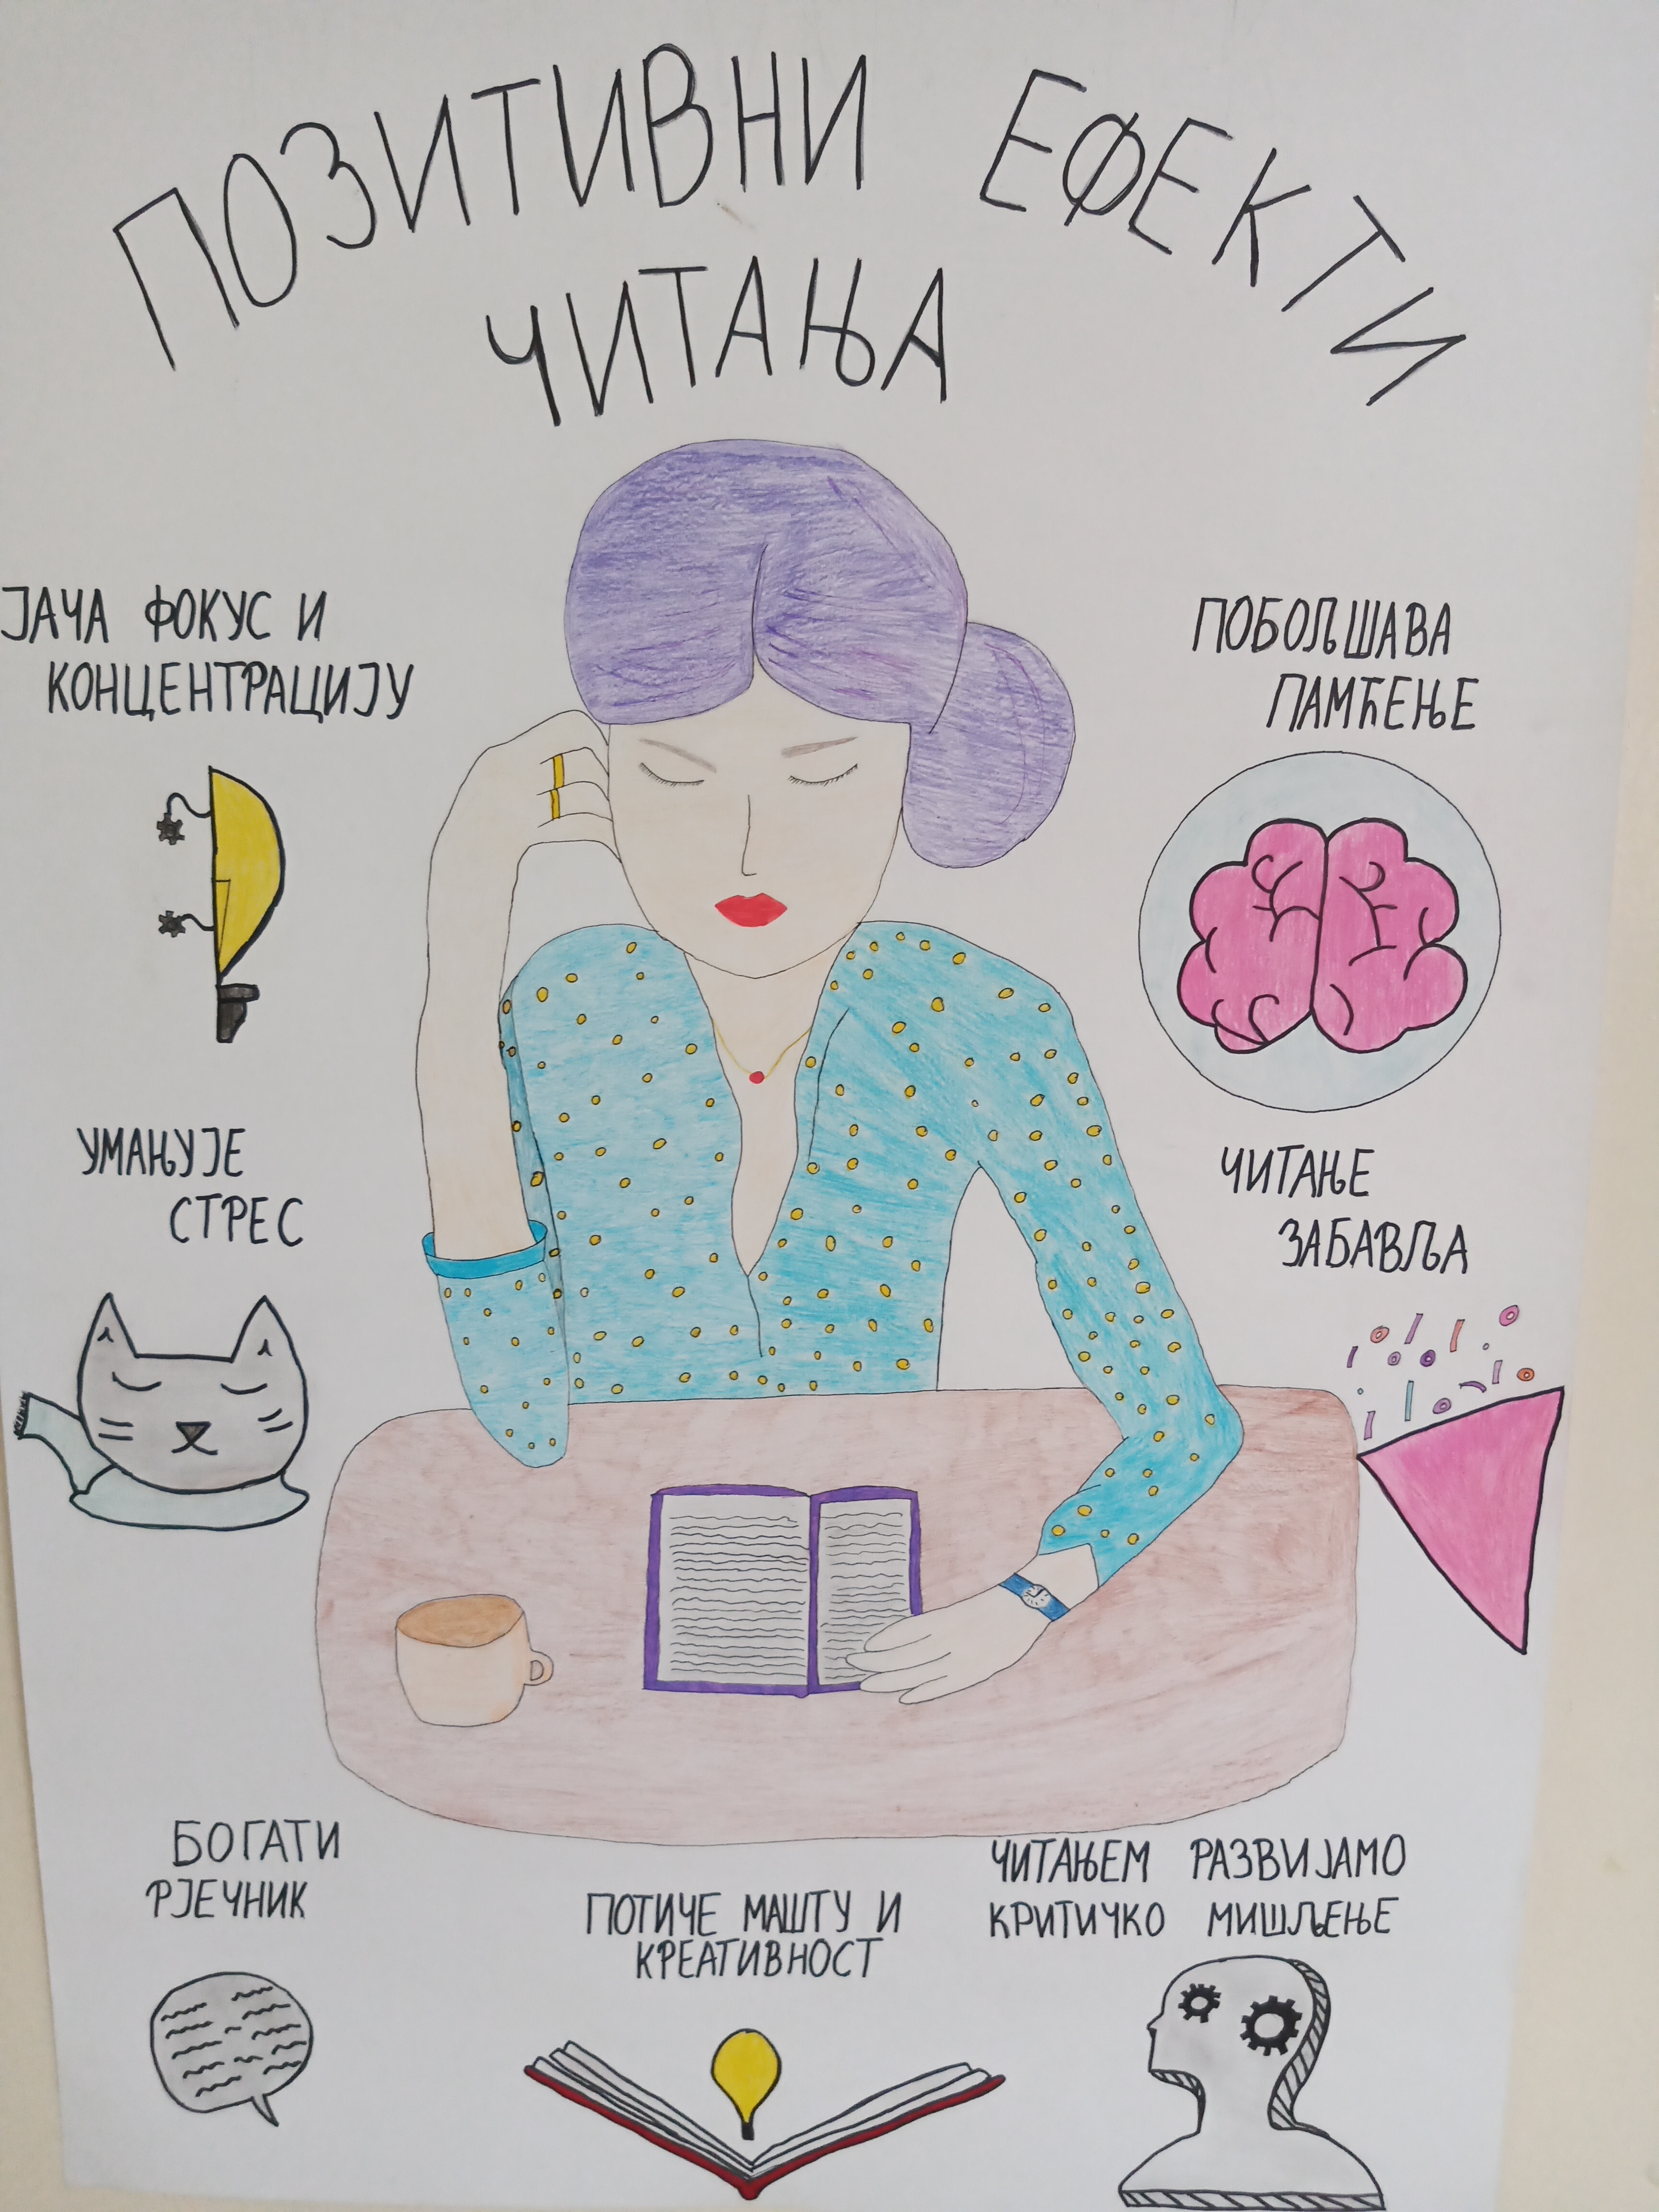 ПОЗИТИВНИ ЕФЕКТИ
ЧИТАЊА
ЈАЧА ФОКУС И
КОНЦЕНТРАЦИЈУ
ПОБОЉШАВА
ПАМЋЕЊЕ
УМАЊУЈЕ
СТРЕС
ЧИТАЊЕ
ЗАБАВЉА
БОГАТИ
РЈЕЧНИК
ПОТИЧЕ МАШТУ И
КРЕАТИВНОСТ
ЧИТАЊЕМ РАЗВИЈАМО
КРИТИЧКО МИШЉЕЊЕ